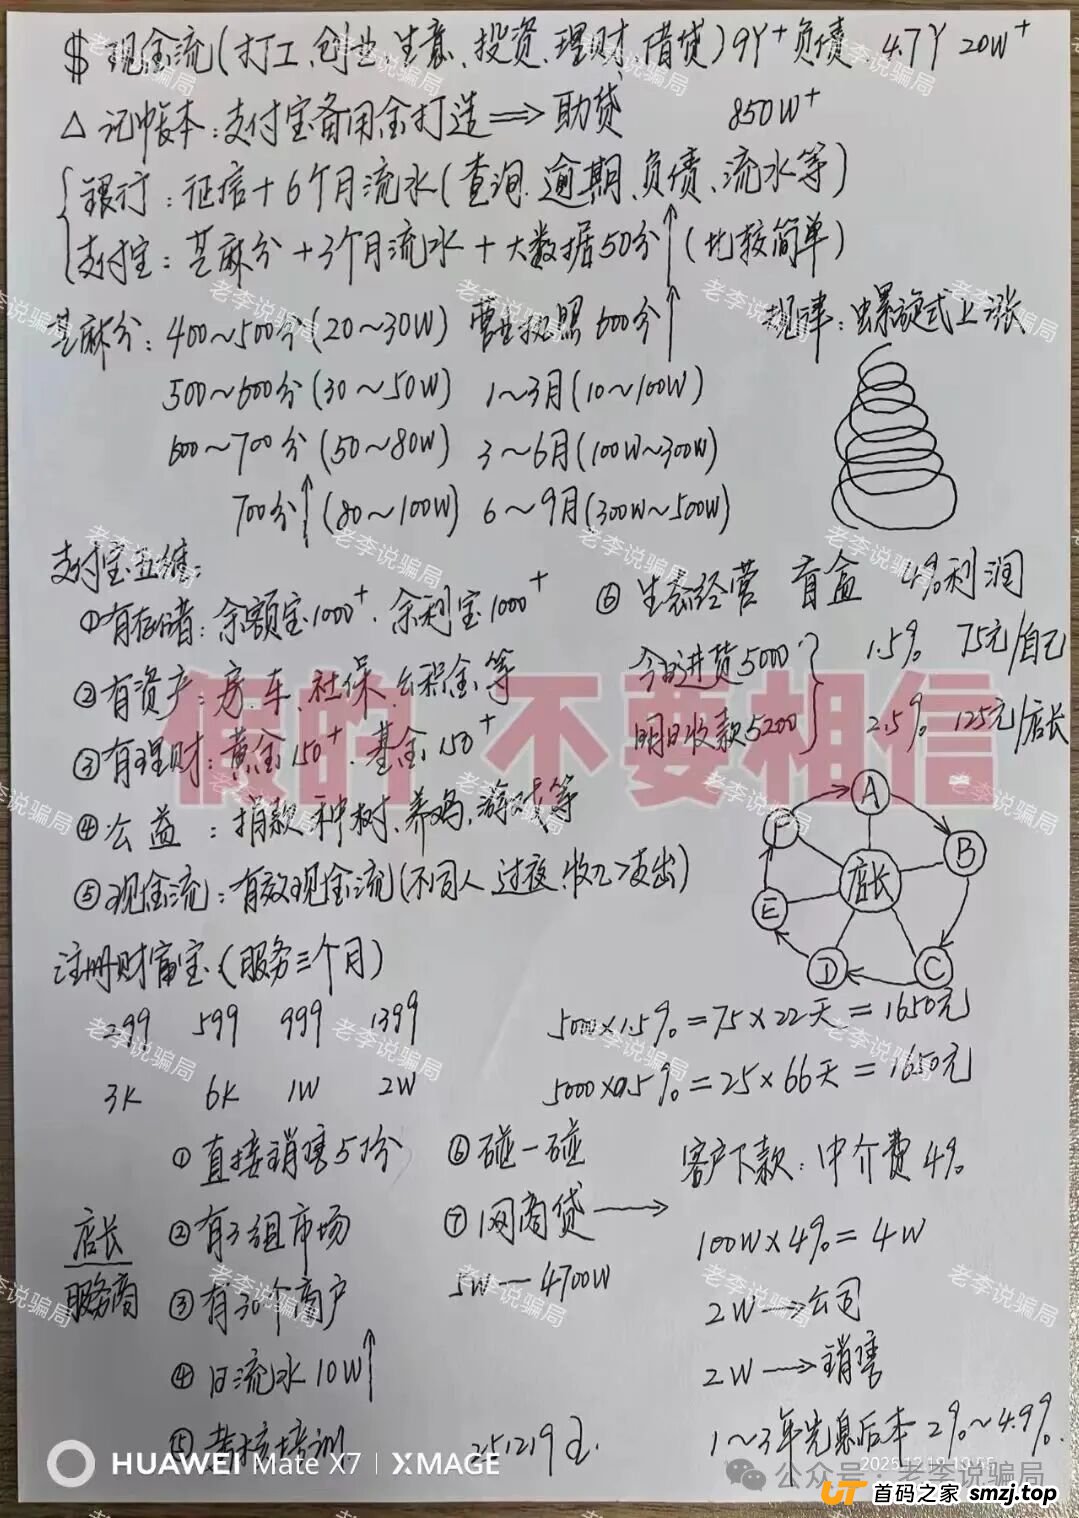 $ 现金流(打工、创业、生意、投资、理财、借贷) 9Y+负债 4.7Y 20W+
△ 记帐本：支付宝备用金打造 ⟹ 助贷 850W+
银行：征信+6个月流水(查询、逾期、负债、流水等)
支付宝：芝麻分+3个月流水+大数据50分↑(比较简单)
芝麻分：400~500分(20~30W) 营业执照 600分↑ 规律：螺旋式上涨
500~600分(30~50W) 1~3月(10~100W)
600~700分(50~80W) 3~6月(100W~300W)
700分↑(80~100W) 6~9月(300W~500W)
支付宝五维：
①有存储：余额宝1000+、余利宝1000+ ⑥生态经营 盲盒 4%利润
②有资产：房、车、社保、公积金等 今日进货5000 1.5% 75元/自己
③有理财：黄金150+、基金150+ 明日收款5200 2.5% 125元/店长
假的 不要相信
④公益：捐款、种树、养鸡、游戏等
⑤现金流：有效现金流(不同人、过夜、收入>支出)
A
B
C
D
E
F
店长
注册财富宝(服务三个月)
299 599 999 1399
3K 6K 1W 2W
5000×1.5%=75×22天=1650元
5000×0.5%=25×66天=1650元
①直接销售5份 ⑥碰一碰 客户下款：中介费4%
店长 ②有3组市场 ⑦网商贷 → 100W×4%=4W
服务商 ③有30个商户 5W—4700W 2W→公司
④日流水10W↑ 2W→销售
⑤考核培训 251219 1~3年先息后本2%~4.9%
HUAWEI Mate X7 | XMAGE
公众号：老李说骗局
首码之家 smzj.top
老李说骗局